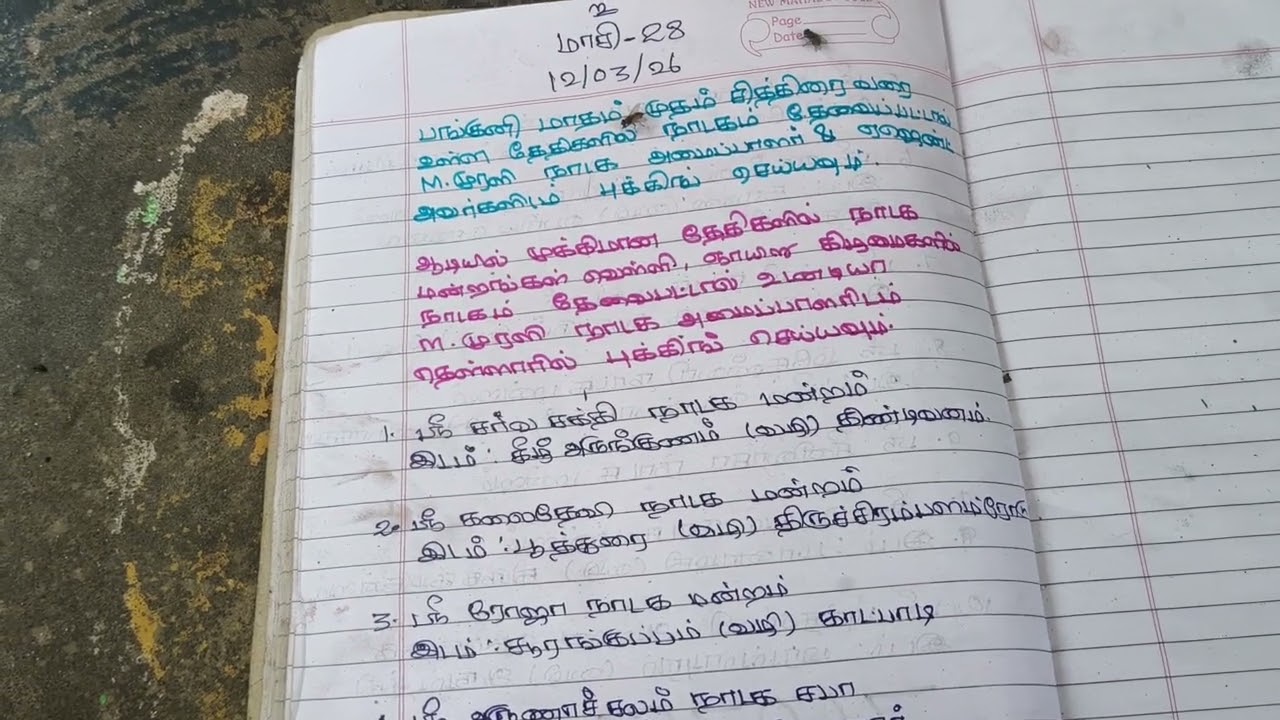 உ
மாசி-28
12/03/26
NEW
Page
Date
பங்குனி மாதம் முதம் சித்திரை வரை
உள்ள தேதிகளில் நாடகம் தேவைப்பட்டால்
M.முரளி நாடக அமைப்பாளர் & ஏஜெண்ட்
அவர்களிடம் புக்கிங் செய்யவும்.
ஆடியில் முக்கிமான தேதிகளில் நாடக
மன்றங்கள் வெள்ளி, ஞாயிறு கிழமைகளில்
நாடகம் தேவைபட்டால் உடனடியா
M.முரளி நாடக அமைப்பாளரிடம்
தெள்ளாரில் புக்கிங் செய்யவும்.
1. ஸ்ரீ சர்வ சக்தி நாடக மன்றம்
இடம் : கீழ் அருங்குணம் (வழி) திண்டிவனம்.
2. ஸ்ரீ கலைதேவி நாடக மன்றம்
இடம் : பூத்துரை (வழி) திருச்சிரம்பலம்ரோடு
3. ஸ்ரீ ரோஜா நாடக மன்றம்
இடம் : சூராங்குப்பம் (வழி) காட்பாடி
ஸ்ரீ அருணாச்சலம் நாடக சபா